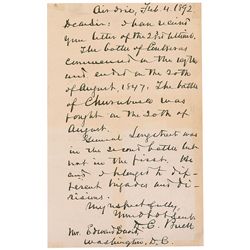 Air drie, Feb. 4. 1892
Dear Sir: I have received
your letter of the 23d ultimo.
The battle of Contreras
commenced on the 19th
and ended on the 20th
of August, 1847. The battle
of Churubusco was
fought on the 20th of
August.
General Longstreet was
in the second battle but
not in the first. He
and I belonged to dif-
ferent brigades and di-
visions.
Very respectfully,
Your obt. Servt.
D. C. Buell
Mr. Edward
Washington, D. C.